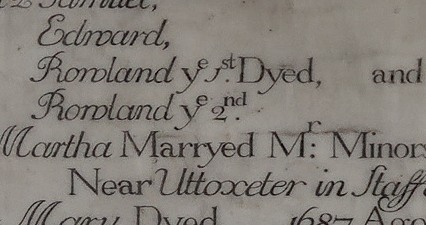 Samuel,
Edward,
Rowland yᵉ 1ˢᵗ. Dyed, and
Rowland yᵉ 2ⁿᵈ.
Martha Marryed Mʳ: Minors
Near Uttoxeter in Staff
Mary Dyed 1687 Aged